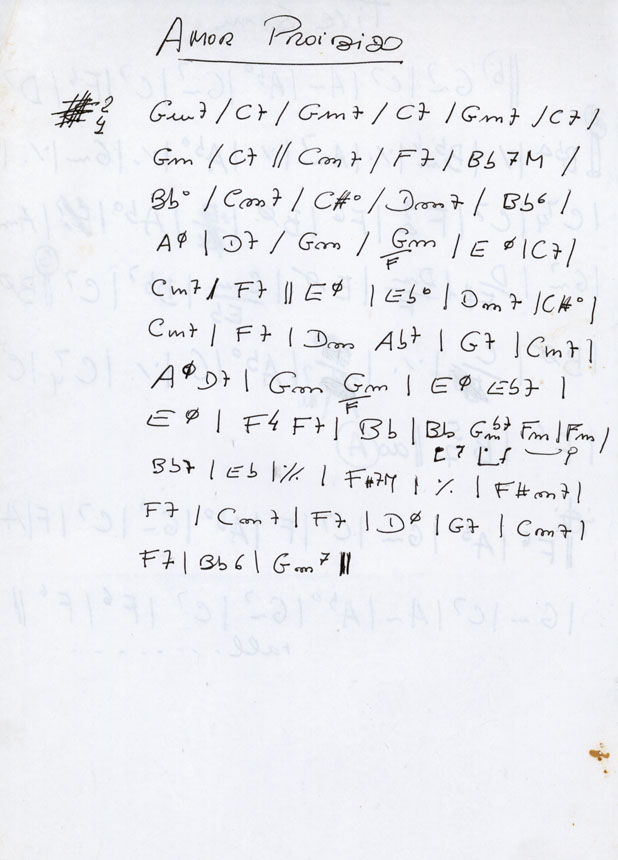 AMOR PROIBIDO
2
4
Gm7 / C7 / Gm7 / C7 / Gm7 / C7 /
Gm / C7 // Cm7 / F7 / Bb7M /
Bb° / Cm7 / C#° / Dm7 / Bb6 /
Aø | D7 / Gm / Gm/F | Eø | C7 |
Cm7 / F7 || Eø | Eb° | Dm7 | C#° |
Cm7 | F7 | Dm Ab7 | G7 | Cm7 |
Aø D7 | Gm Gm/F | Eø Eb7 |
Eø | F4 F7 | Bb | Bb Gm Fm | Fm |
Bb7 | Eb | ٪ | F#7M | ٪ | F#m7 |
F7 | Cm7 | F7 | Dø | G7 | Cm7 |
F7 | Bb6 | Gm7 ||